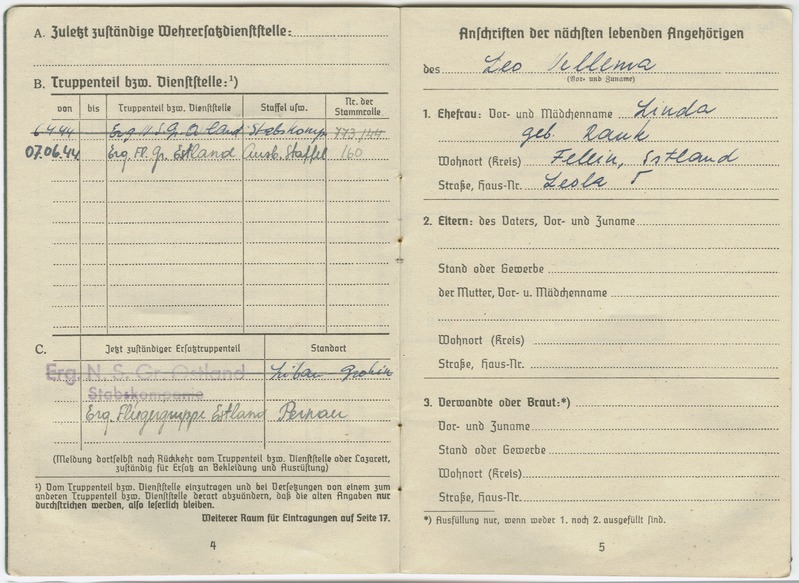 A. Zuletzt zuständige Wehrersatzdienststelle:
B. Truppenteil bzw. Dienststelle:¹)
von bis Truppenteil bzw. Dienststelle Staffel usw. Nr. der Stammrolle
6.4.44 Erg. N.S.Gr. Ostland Stabskomp. 773/44
07.06.44 Erg. Fl. Gr. Estland Ausb. Staffel 160
C. Jetzt zuständiger Ersatztruppenteil Standort
Erg. N. S. Gr. Ostland Libau Grobin
Stabskompanie
Erg. Fliegergruppe Estland Pernau
(Meldung dortselbst nach Rückkehr vom Truppenteil bzw. Dienststelle oder Lazarett,
zuständig für Ersatz an Bekleidung und Ausrüstung)
¹) Vom Truppenteil bzw. Dienststelle einzutragen und bei Versetzungen von einem zum
anderen Truppenteil bzw. Dienststelle derart abzuändern, daß die alten Angaben nur
durchstrichen werden, also leserlich bleiben.
Weiterer Raum für Eintragungen auf Seite 17.
4
Anschriften der nächsten lebenden Angehörigen
des Leo Vellema
(Vor- und Zuname)
1. Ehefrau: Vor- und Mädchenname Linda
geb. Rauk
Wohnort (Kreis) Fellin, Estland
Straße, Haus-Nr. 5
2. Eltern: des Vaters, Vor- und Zuname
Stand oder Gewerbe
der Mutter, Vor- u. Mädchenname
Wohnort (Kreis)
Straße, Haus-Nr.
3. Verwandte oder Braut:*)
Vor- und Zuname
Stand oder Gewerbe
Wohnort (Kreis)
Straße, Haus-Nr.
*) Ausfüllung nur, wenn weder 1. noch 2. ausgefüllt sind.
5